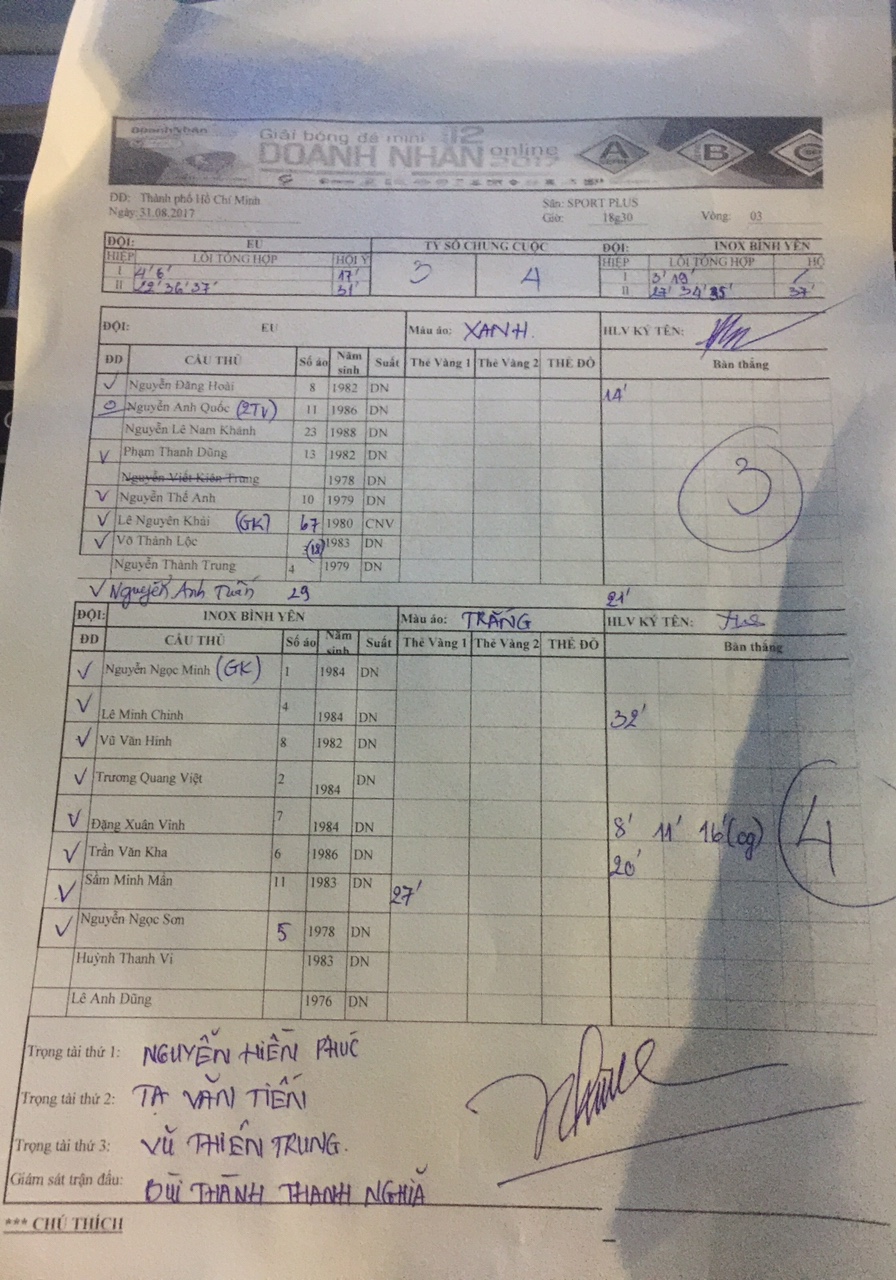 Doanh Nhân
Giải bóng đá mini 12
DOANH NHÂN online 2017
A B C
ĐĐ: Thành phố Hồ Chí Minh Sân: SPORT PLUS
Ngày: 31.08.2017 Giờ: 18g30 Vòng: 03
ĐỘI: EU TỶ SỐ CHUNG CUỘC ĐỘI: INOX BÌNH YÊN
HIỆP LỖI TỔNG HỢP HỘI Ý 3 4 HIỆP LỖI TỔNG HỢP HỘ
I 4' 6' 17' I 3' 19' /
II 22' 36' 37' 31' II 27' 34' 35' 37'
ĐỘI: EU Màu áo: XANH. HLV KÝ TÊN:
ĐD CẦU THỦ Số áo Năm sinh Suất Thẻ Vàng 1 Thẻ Vàng 2 THẺ ĐỎ Bàn thắng
Nguyễn Đăng Hoài 8 1982 DN 14'
Nguyễn Anh Quốc (2TV) 11 1986 DN
Nguyễn Lê Nam Khánh 23 1988 DN
Phạm Thanh Dũng 13 1982 DN 3
Nguyễn Viết Kiên Trung 1978 DN
Nguyễn Thế Anh 10 1979 DN
Lê Nguyên Khải (GK) 67 1980 CNV
Võ Thành Lộc (18) 1983 DN
Nguyễn Thành Trung 4 1979 DN
Nguyễn Anh Tuấn 29 21'
ĐỘI: INOX BÌNH YÊN Màu áo: TRẮNG HLV KÝ TÊN:
ĐD CẦU THỦ Số áo Năm sinh Suất Thẻ Vàng 1 Thẻ Vàng 2 THẺ ĐỎ Bàn thắng
Nguyễn Ngọc Minh (GK) 1 1984 DN
Lê Minh Chinh 4 1984 DN 32'
Vũ Văn Hinh 8 1982 DN
Trương Quang Việt 2 1984 DN
Đặng Xuân Vinh 7 1984 DN 8' 11' 16' (og) 4
Trần Văn Kha 6 1986 DN 20'
Sầm Minh Mẫn 11 1983 DN 27'
Nguyễn Ngọc Sơn 5 1978 DN
Huỳnh Thanh Vi 1983 DN
Lê Anh Dũng 1976 DN
Trọng tài thứ 1: NGUYỄN HIỀN PHÚC
Trọng tài thứ 2: TẠ VĂN TIẾN
Trọng tài thứ 3: VŨ THIÊN TRUNG.
Giám sát trận đấu: BÙI THÀNH THANH NGHĨA
*** CHÚ THÍCH